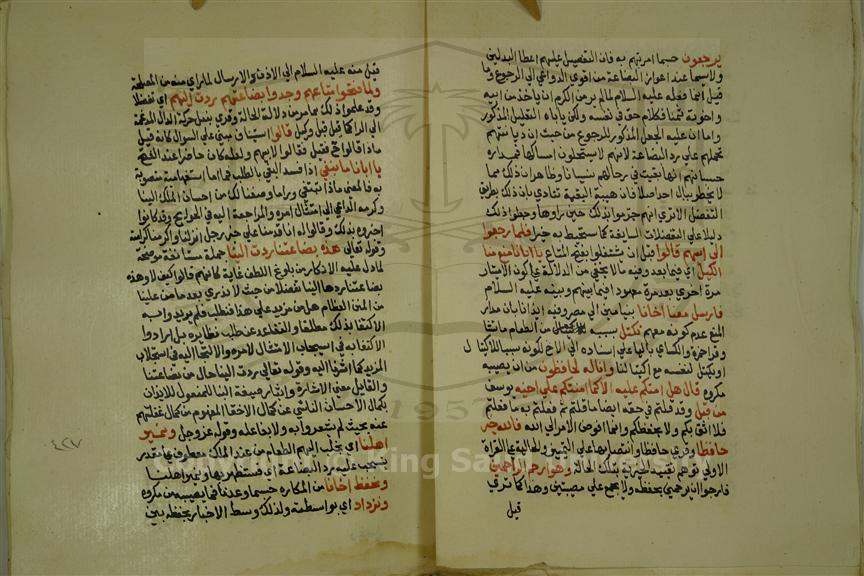 يرجعون حسبما امرتهم به فان التفضيل عليهم باعطا البدلين
ولا سيما عند اعواز البضاعة من اقوى الدواعي الى الرجوع وما
قيل انما فعله عليه السلام لما لم ير من الكرم ان ياخذ من ابيه
واخوته ثمنا فكلام حق في نفسه ولكن ياباه التعليل المذكور
واما ان علية الجعل المذكور للرجوع من حيث ان ديانتهم
تحملهم على رد البضاعة لانهم لا يستحلون امساكها فمداره
حسبانهم انها بقيت في رحالهم نسيانا وظاهر ان ذلك مما
لا يخطر ببال احد اصلا فان هيئة التعبية تنادي بان ذلك بطريق
التفضل الا ترى انهم جزموا بذلك حين راوها وجعلوا ذلك
دليلا على التفضلات السابقة كما ستحيط به خبرا فلما رجعوا
الى ابيهم قالوا قبل ان يشتغلوا بفتح المتاع يا ابانا منع منا
الكيل اي فيما بعد وفيه ما لا يخفى من الدلالة على كون الامتيار
مرة اخرى بعد مرة معهودا فيما بينهم وبينه عليه السلام
فارسل معنا اخانا بنيامين الى مصر وفيه ايذان بان مدار
المنع عدم كونه معهم نكتل بسببه من الطعام ما نشا
وقرا حمزة والكسائي باليا على اسناده الى الاخ لكونه سببا للاكتيال
او يكتل لنفسه مع اكتيالنا وانا له لحافظون من ان يصيبه
مكروه قال هل امنكم عليه الا كما امنتكم على اخيه يوسف
من قبل وقد قلتم في حقه ايضا ما قلتم ثم فعلتم به ما فعلتم
فلا اثق بكم ولا بحفظكم وانما افوض الامر الى الله فالله خير
حافظا وقرى حفظا وانتصابهما على التمييز والحالية على القراة
الاولى توهم تقييد الخيرية بتلك الحالة وهو ارحم الراحمين
فارجوا ان يرحمني بحفظه ولا يجمع علي مصيبتين وهذا كما ترى
قيل
قيل منه عليه السلام الى الاذن والارسال لما راى منه من المصلحة
ولما فتحوا متاعهم وجدوا بضاعتهم ردت اليهم اي تفضلا
وقد علموا ذلك بما مر من دلالة الحال وقرى بنقل حركة الدال المدغمة
الى الرا كما قيل في قيل وكيل قالوا استيناف مبني على السوال كانه قيل
ماذا قالوا فقيل قالوا لابيهم ولعله كان حاضرا عند الفتح
يا ابانا ما نبغي اذا فسر البغي بالطلب فما اما استفهامية منصوبة
به فالمعنى ماذا نبتغي ورا ما وصفنا لك من احسان الملك الينا
وكرمه الداعي الى امتثال امره والمراجعة اليه في الحوايج وقد كانوا
اخبروه بذلك وقالوا له انا قدمنا على خير رجل انزلنا واكرمنا كرامة
وقوله تعالى هذه بضاعتنا ردت الينا جملة مستانفة موضحة
لما دل عليه الانكار من بلوغ اللطف غايته كانهم قالوا كيف لا وهذه
بضاعتنا ردها الينا تفضلا من حيث لا ندري بعد ما من علينا
من المنن العظام هل من مزيد على هذا فنطلبه ولم يريدوا به
الاكتفا بذلك مطلقا والتقاعد عن طلب نظايره بل ارادوا
الاكتفا به في استيجاب الامتثال لامره والالتجا اليه في استجلاب
المزيد كما اشرنا اليه وقوله تعالى ردت الينا حال من بضاعتنا
والعامل معنى الاشارة وايثار صيغة البنا للمفعول للايذان
بكمال الاحسان الناشي عن كمال الاخفا المفهوم من كمال غفلتهم
عنه بحيث لم يشعروا به ولا بفاعله وقوله عز وجل ونمير
اهلنا اي نجلب اليهم الطعام من عند الملك معطوف على مقدر
ينسحب عليه رد البضاعة اي فنستظهر بها ونمير اهلنا
ونحفظ اخانا من المكاره حسبما وعدنا فما يصيبه من مكروه
ونزداد اي بواسطته ولذلك وسط الاخبار بحفظه بين
٤٢٧
Copyright © King Saud University
1957